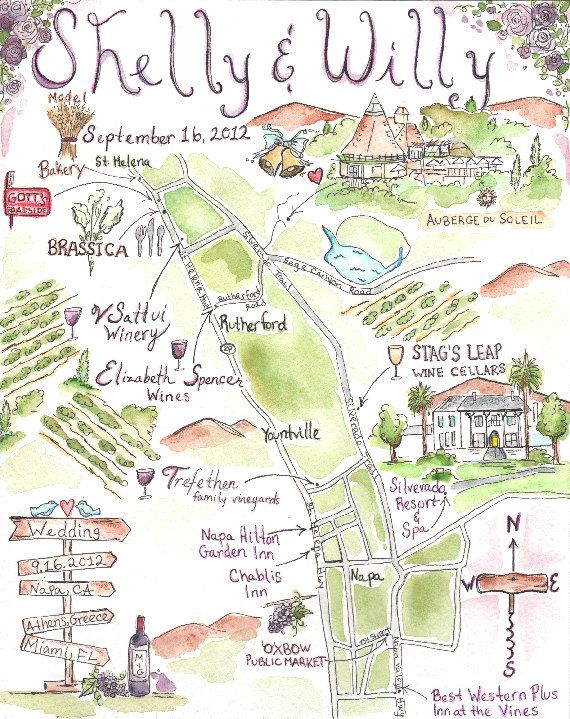 Shelly & Willy
September 16, 2012
Model
Bakery
St Helena
GOTT'S
ROADSIDE
BRASSICA
AUBERGE DU SOLEIL
Silverado Trail
Sage Canyon Road
St Helena Hwy
Rutherford
Road
Rutherford
V Sattui
Winery
Elizabeth Spencer
Wines
29
STAG'S LEAP
WINE CELLARS
Silverado Trail
Yountville
Trefethen
family vineyards
Silverado
Resort
&
Spa
St Helena Hwy
Napa Hilton
Garden Inn
Chablis
Inn
Napa
OXBOW
PUBLIC MARKET
First Street
Napa Valley Hwy
Best Western Plus
Inn at the Vines
Wedding
9.16.2012
Napa, CA
Athens, Greece
Miami, FL
N
W
E
S